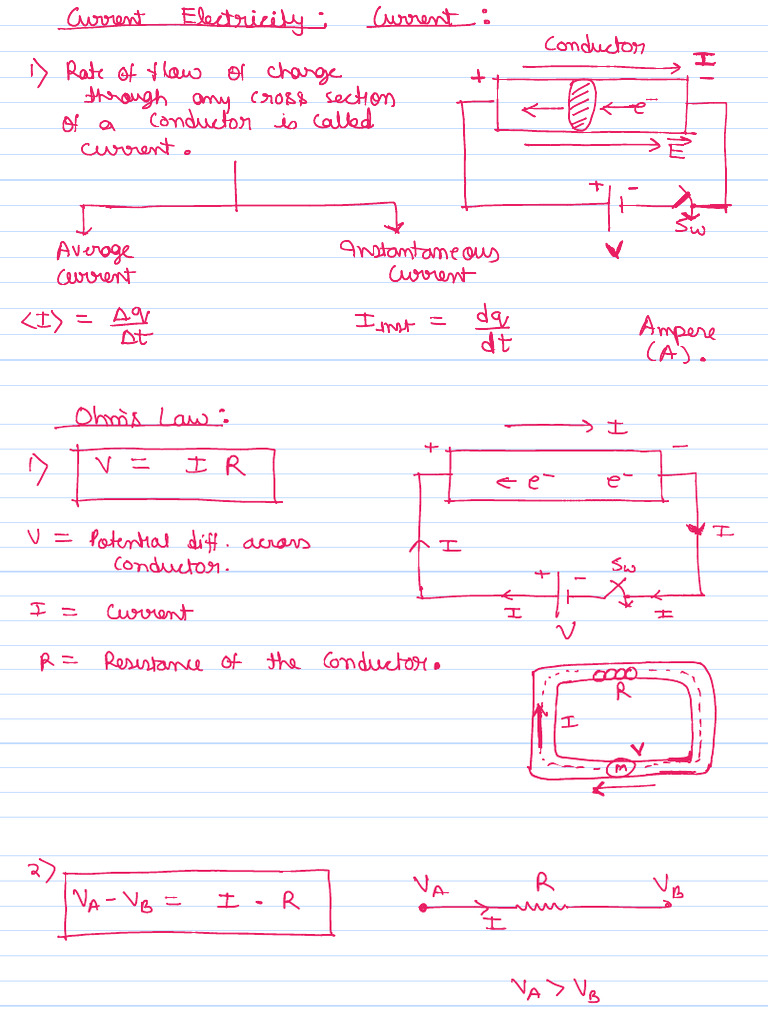 Current Electricity : Current :
Conductor
I
1) Rate of flow of charge
through any cross section
of a conductor is called
current.
+ −
← ← e⁻
E
+ −
V
Sw
Average
current
Instantaneous
Current
<I> = Δq/Δt
I inst = dq/dt
Ampere
(A).
Ohm's Law :
→ I
1) V = I R
+ −
← e⁻ e⁻
V = Potential diff. across
Conductor.
I
I
+ −
Sw
I
I
V
I = Current
R = Resistance of the Conductor.
R
I
V
M
2) VA − VB = I . R
VA R VB
I
VA > VB